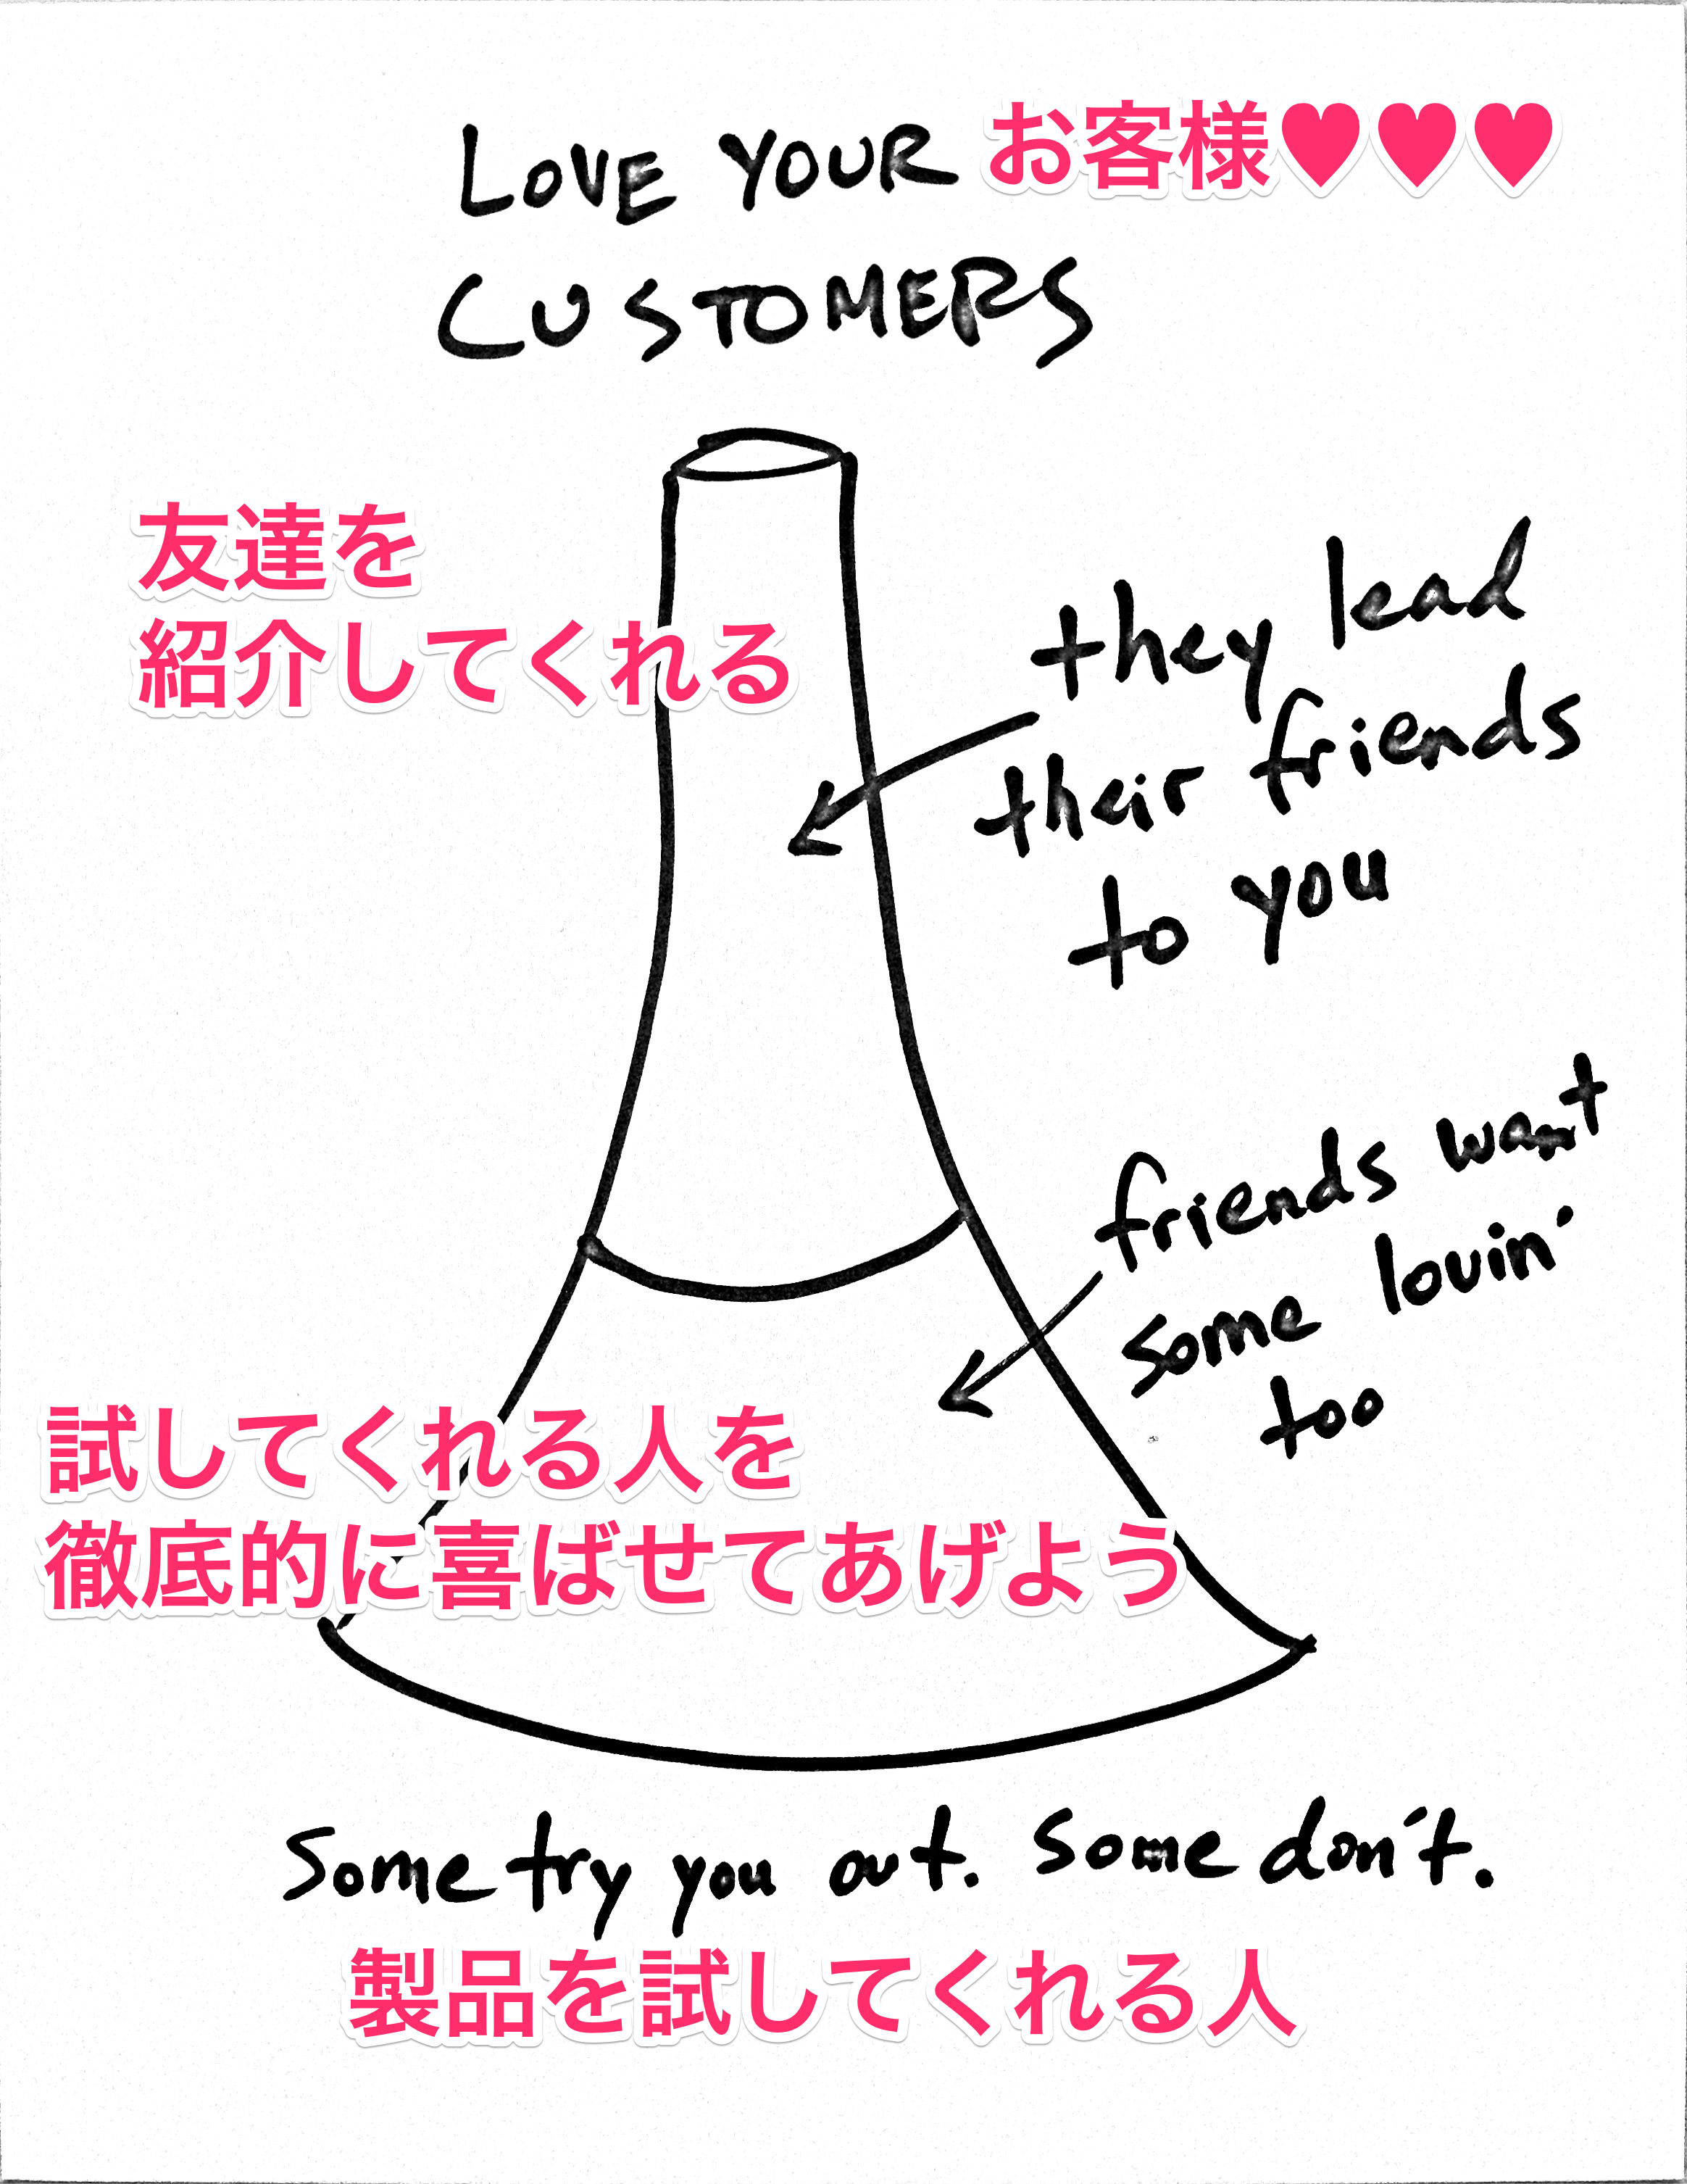 LOVE YOUR お客様♥♥♥
CUSTOMERS
友達を
紹介してくれる
they lead
their friends
to you
friends want
some lovin'
too
試してくれる人を
徹底的に喜ばせてあげよう
Some try you out. Some don't.
製品を試してくれる人